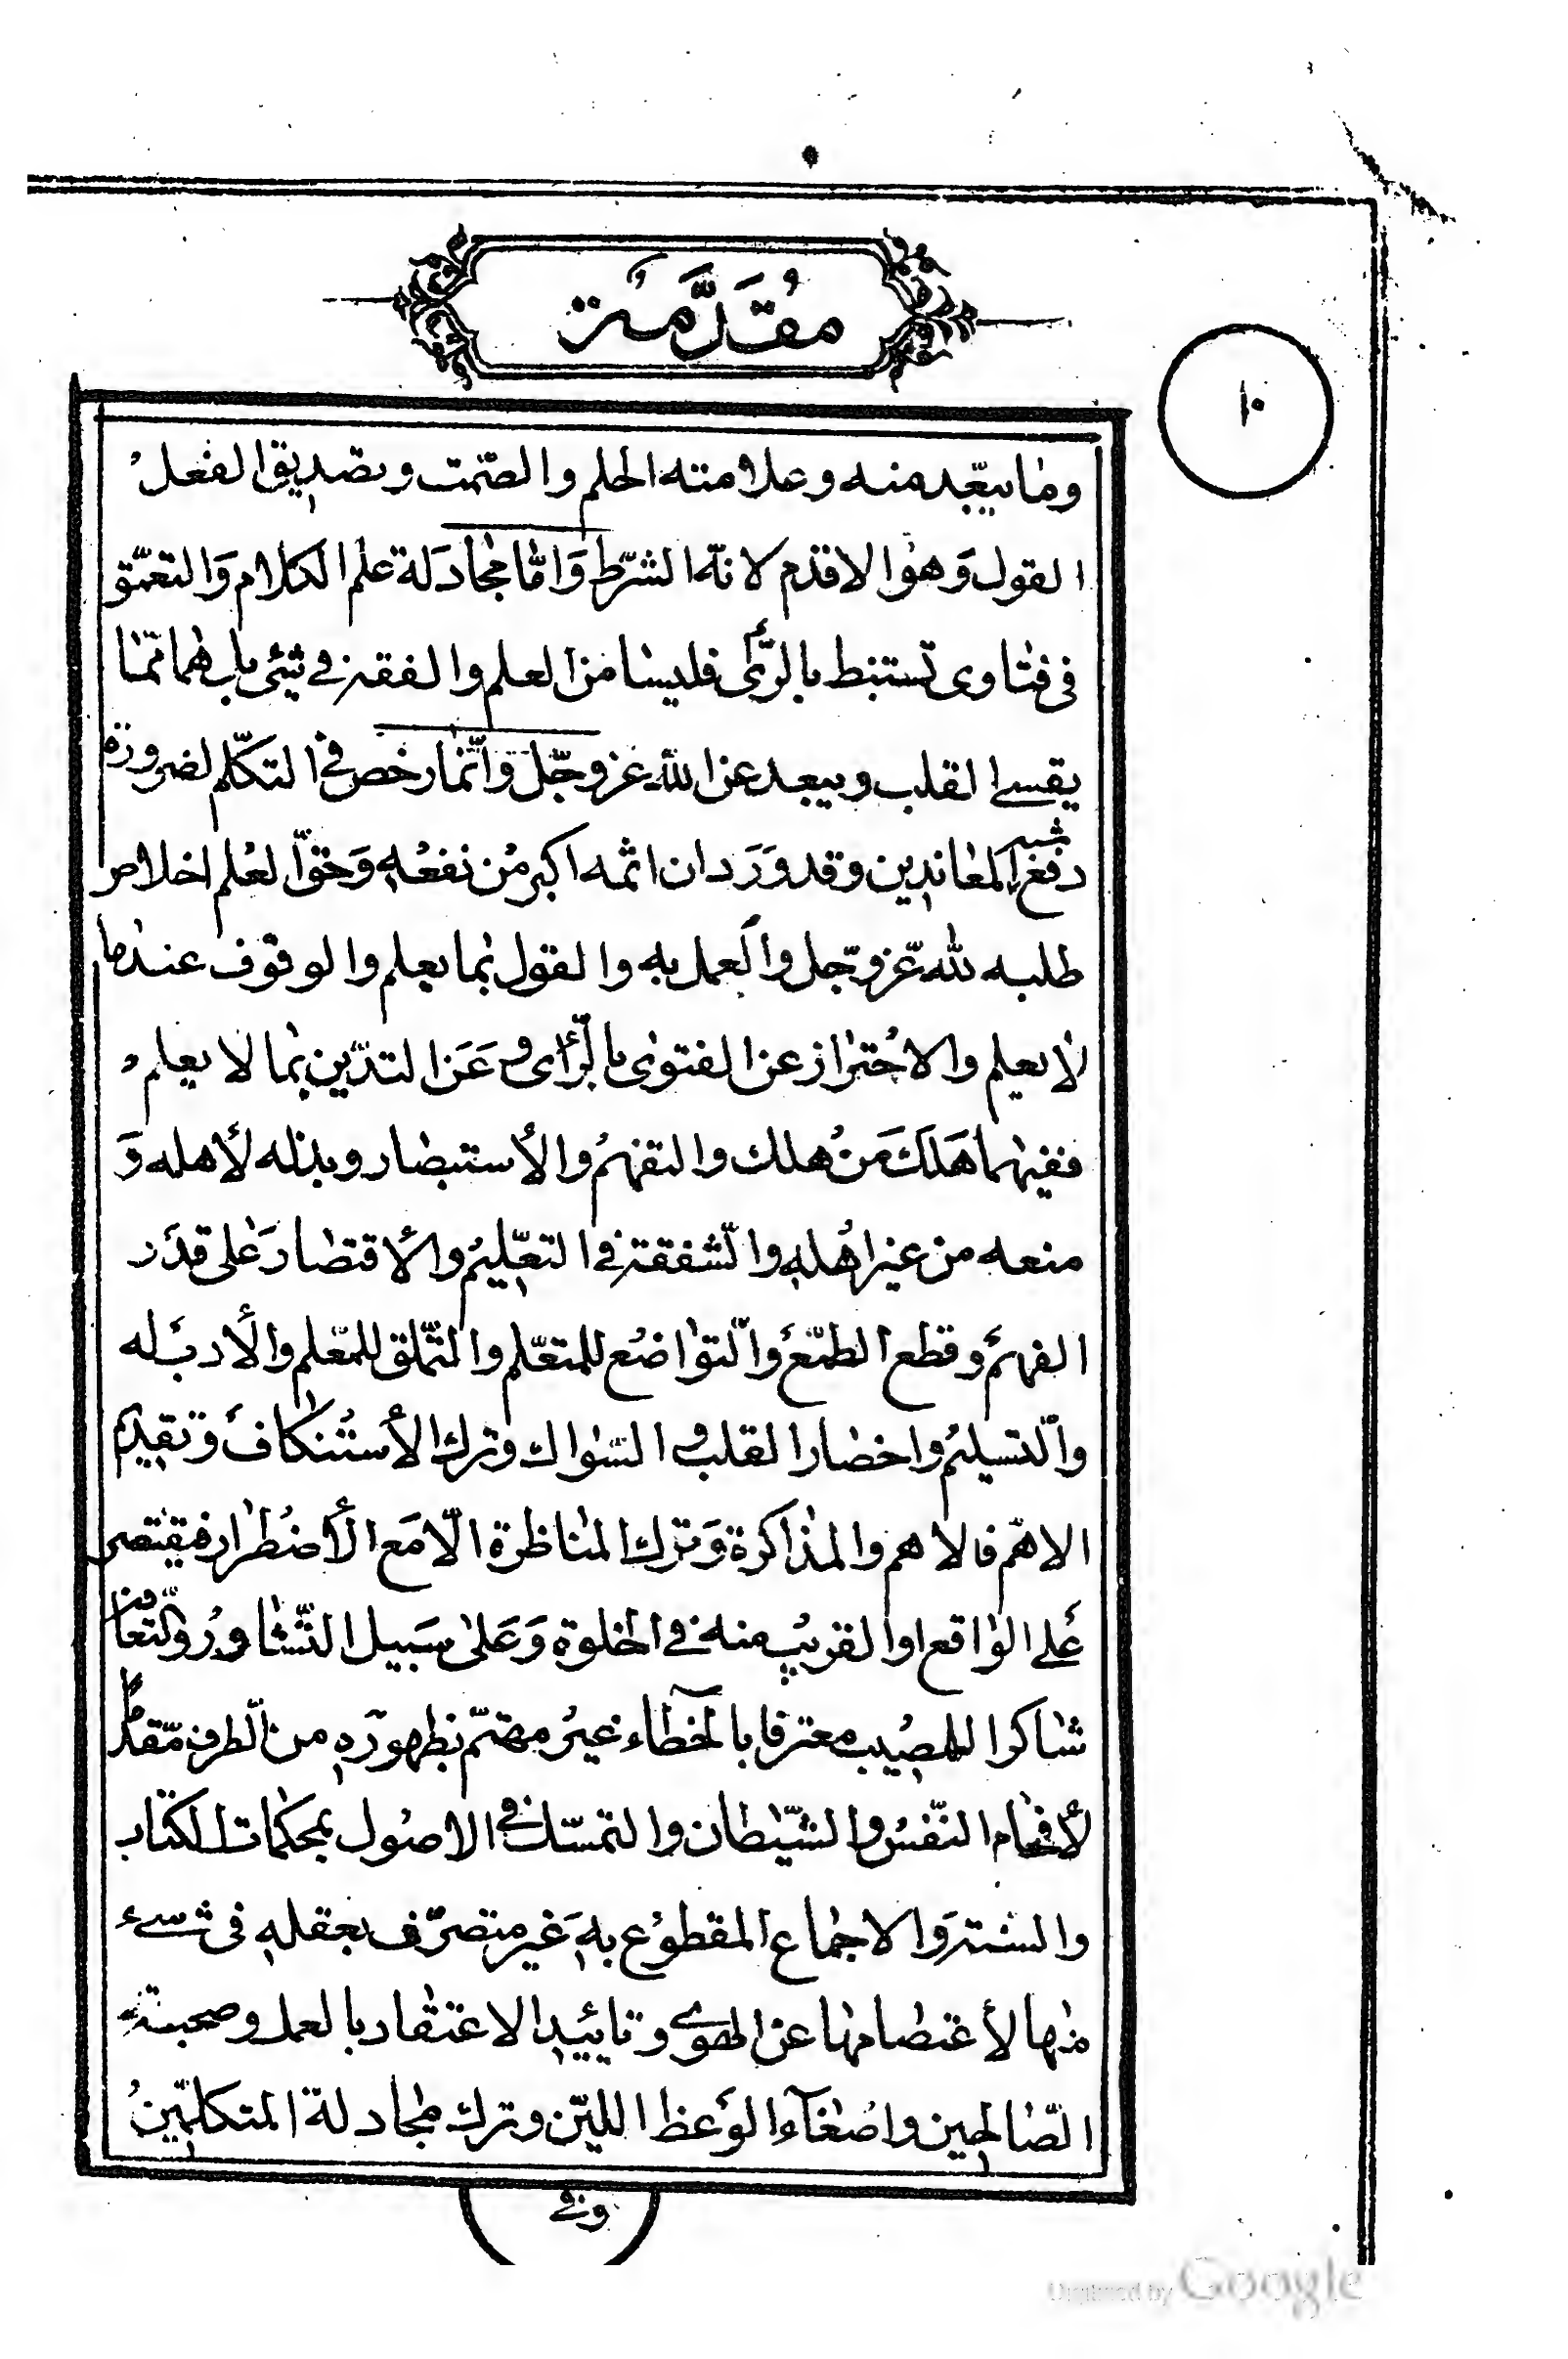 مُقَدَّمَة
١٠
وما يبعّد منه وعلامته الحلم والصّمت وتصديق الفعل
القول وَهو الاقدم لانّه الشّرط وَامّا مجادَلة علم الكلام وَالتعمّق
فى فتاوى تستنبط بالرّأى فليسا من العلم والفقه فى شئ بل هما ممّا
يقسى القلب ويبعد عن الله عز وجّل وانّما رخص فى التكلّم لضرورة
دفع شبه المعاندين وقد وَرَد ان اثمه اكبر من نفعه وَحقّ العلم اخلاص
طلبه لله عّز وجّل والعمل به والقول بما يعلم والوقوف عند ما
لا يعلم والاحتراز عن الفتوى بالرّأى وعَن التديّن بما لا يعلم
ففيهما هَلَكَ مَن هلك والتفهّم والأستبصار وبذله لأهله وَ
منعه من غير اهله والشّفقة فى التعليم والأقتصار على قدَر
الفهم وقطع الطمع والتواضع للمتعلّم والتملّق للمعّلم والأدب له
والتسليم واحضار القلب و السّواك وترك الأستنكاف وتقديم
الاهّم فالاهم والمذاكرة وَترك المناظرة الّا مَع الأضطرار فيقتصر
على الواقع او القريب منه فى الخلوة وَعَلى سَبيل التّشاور والتعاون
شاكرا للمصيب معترفا بالخطاء غير مهتمّ بظهوره من الطرف مقدّما
لأفحام النّفس والشّيطان والتمسّك فى الاصول بمحكمات الكتاب
والسّنة وَالاجماع المقطوع به غير متصرّف بعقله فى شىء
منها لأعتصامها عن الهوى وتاييد الاعتقاد بالعمل وصحبة
الصّالحين واصغآء الوعظ الليّن وترك مجادلة المتكلّمين
وفى
Digitized by Google